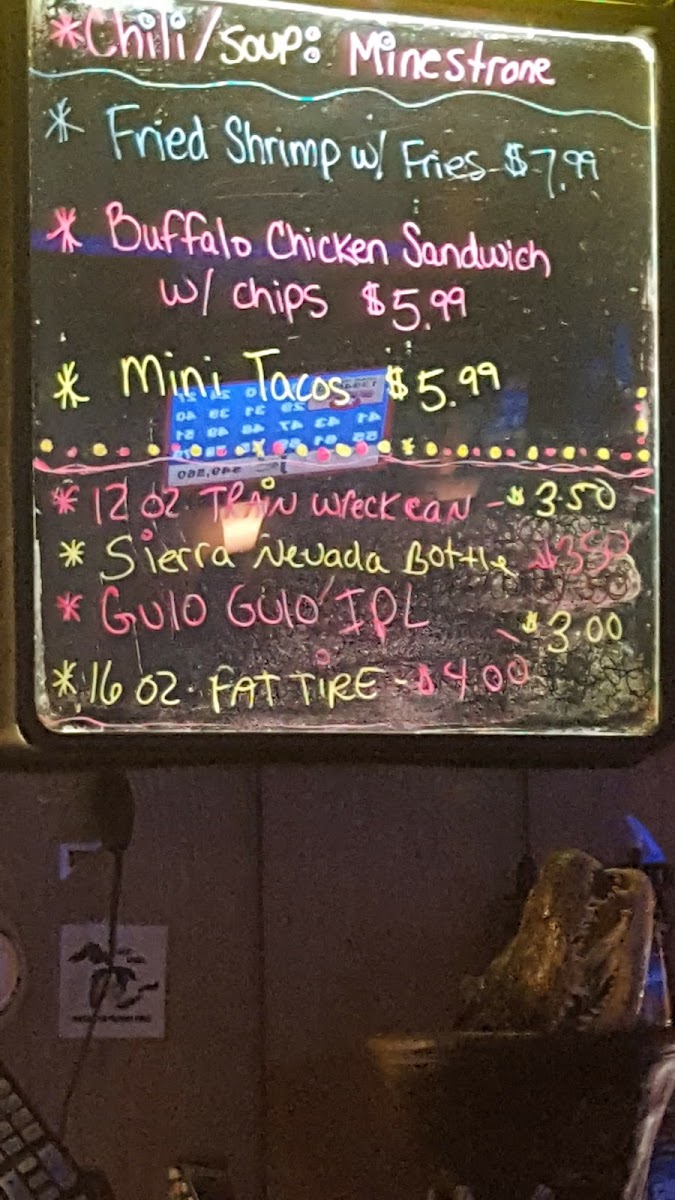 *Chili/Soup: Minestrone
* Fried Shrimp w/ Fries-$7.99
* Buffalo Chicken Sandwich
w/ chips $5.99
* Mini Tacos $5.99
* 12 oz. TRAIN Wreck can - $3.50
* Sierra Nevada Bottle $3.50
* Gulo Gulo IPL - $3.00
* 16 oz. FAT TIRE - $4.00